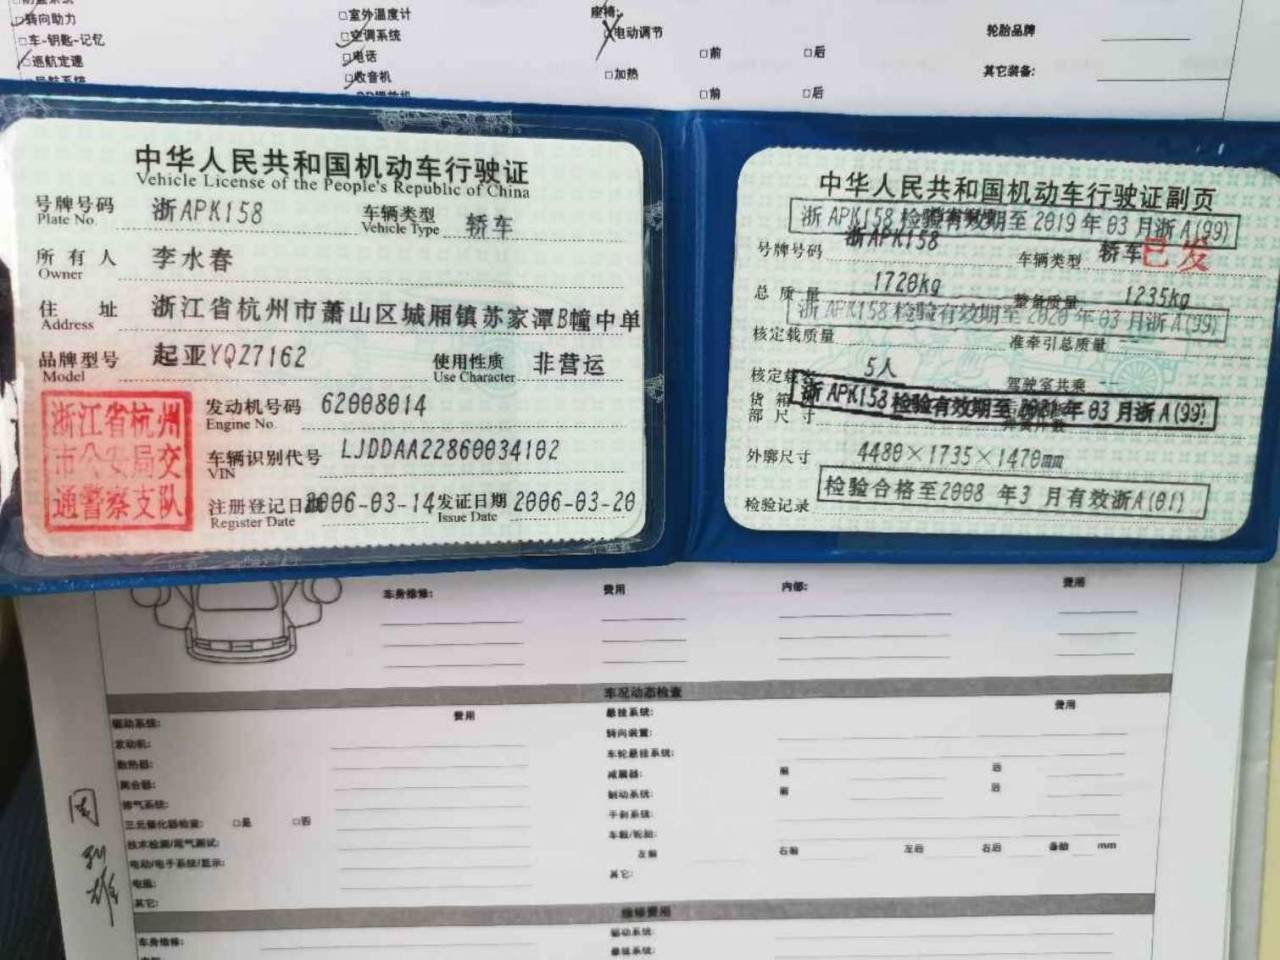 转向助力
车-钥匙-记忆
巡航定速
室外温度计
空调系统
电话
收音机
座椅:
电动调节
□前 □后
□加热
□前 □后
轮胎品牌
其它装备:
中华人民共和国机动车行驶证
Vehicle License of the People's Republic of China
号牌号码 浙APK158 车辆类型 轿车
Plate No. Vehicle Type
所有人 李水春
Owner
住址 浙江省杭州市萧山区城厢镇苏家潭B幢中单
Address
品牌型号 起亚YQZ7162 使用性质 非营运
Model Use Character
浙江省杭州
市公安局交
通警察支队
发动机号码 62008014
Engine No.
车辆识别代号 LJDDAA22860034102
VIN
注册登记日期 2006-03-14 发证日期 2006-03-20
Register Date Issue Date
中华人民共和国机动车行驶证副页
浙APK158 检验有效期至2019年03月浙A(99)
号牌号码 浙APK158 车辆类型 轿车 已发
总质量 1720kg 整备质量 1235kg
浙APK158 检验有效期至2020年03月浙A(99)
核定载质量 -- 准牵引总质量 --
核定载客 5人 驾驶室共乘 --
浙APK158 检验有效期至2021年03月浙A(99)
货箱
部尺寸
外廓尺寸 4480×1735×1470mm
检验记录 检验合格至2008年3月有效浙A(01)
车身维修: 费用 内部: 费用
车况动态检查
驱动系统: 费用
发动机:
散热器:
离合器:
排气系统:
三元催化器检查: □是 □否
技术检测/尾气测试:
电动/电子系统/显示:
电瓶:
其它:
悬挂系统: 费用
转向装置:
车轮悬挂系统:
减震器: 前 后
制动系统: 前 后
手刹系统:
车毂/轮胎:
左前 右前 左后 右后 备胎 mm
其它:
维修费用
车身维修: 驱动系统:
悬挂系统: